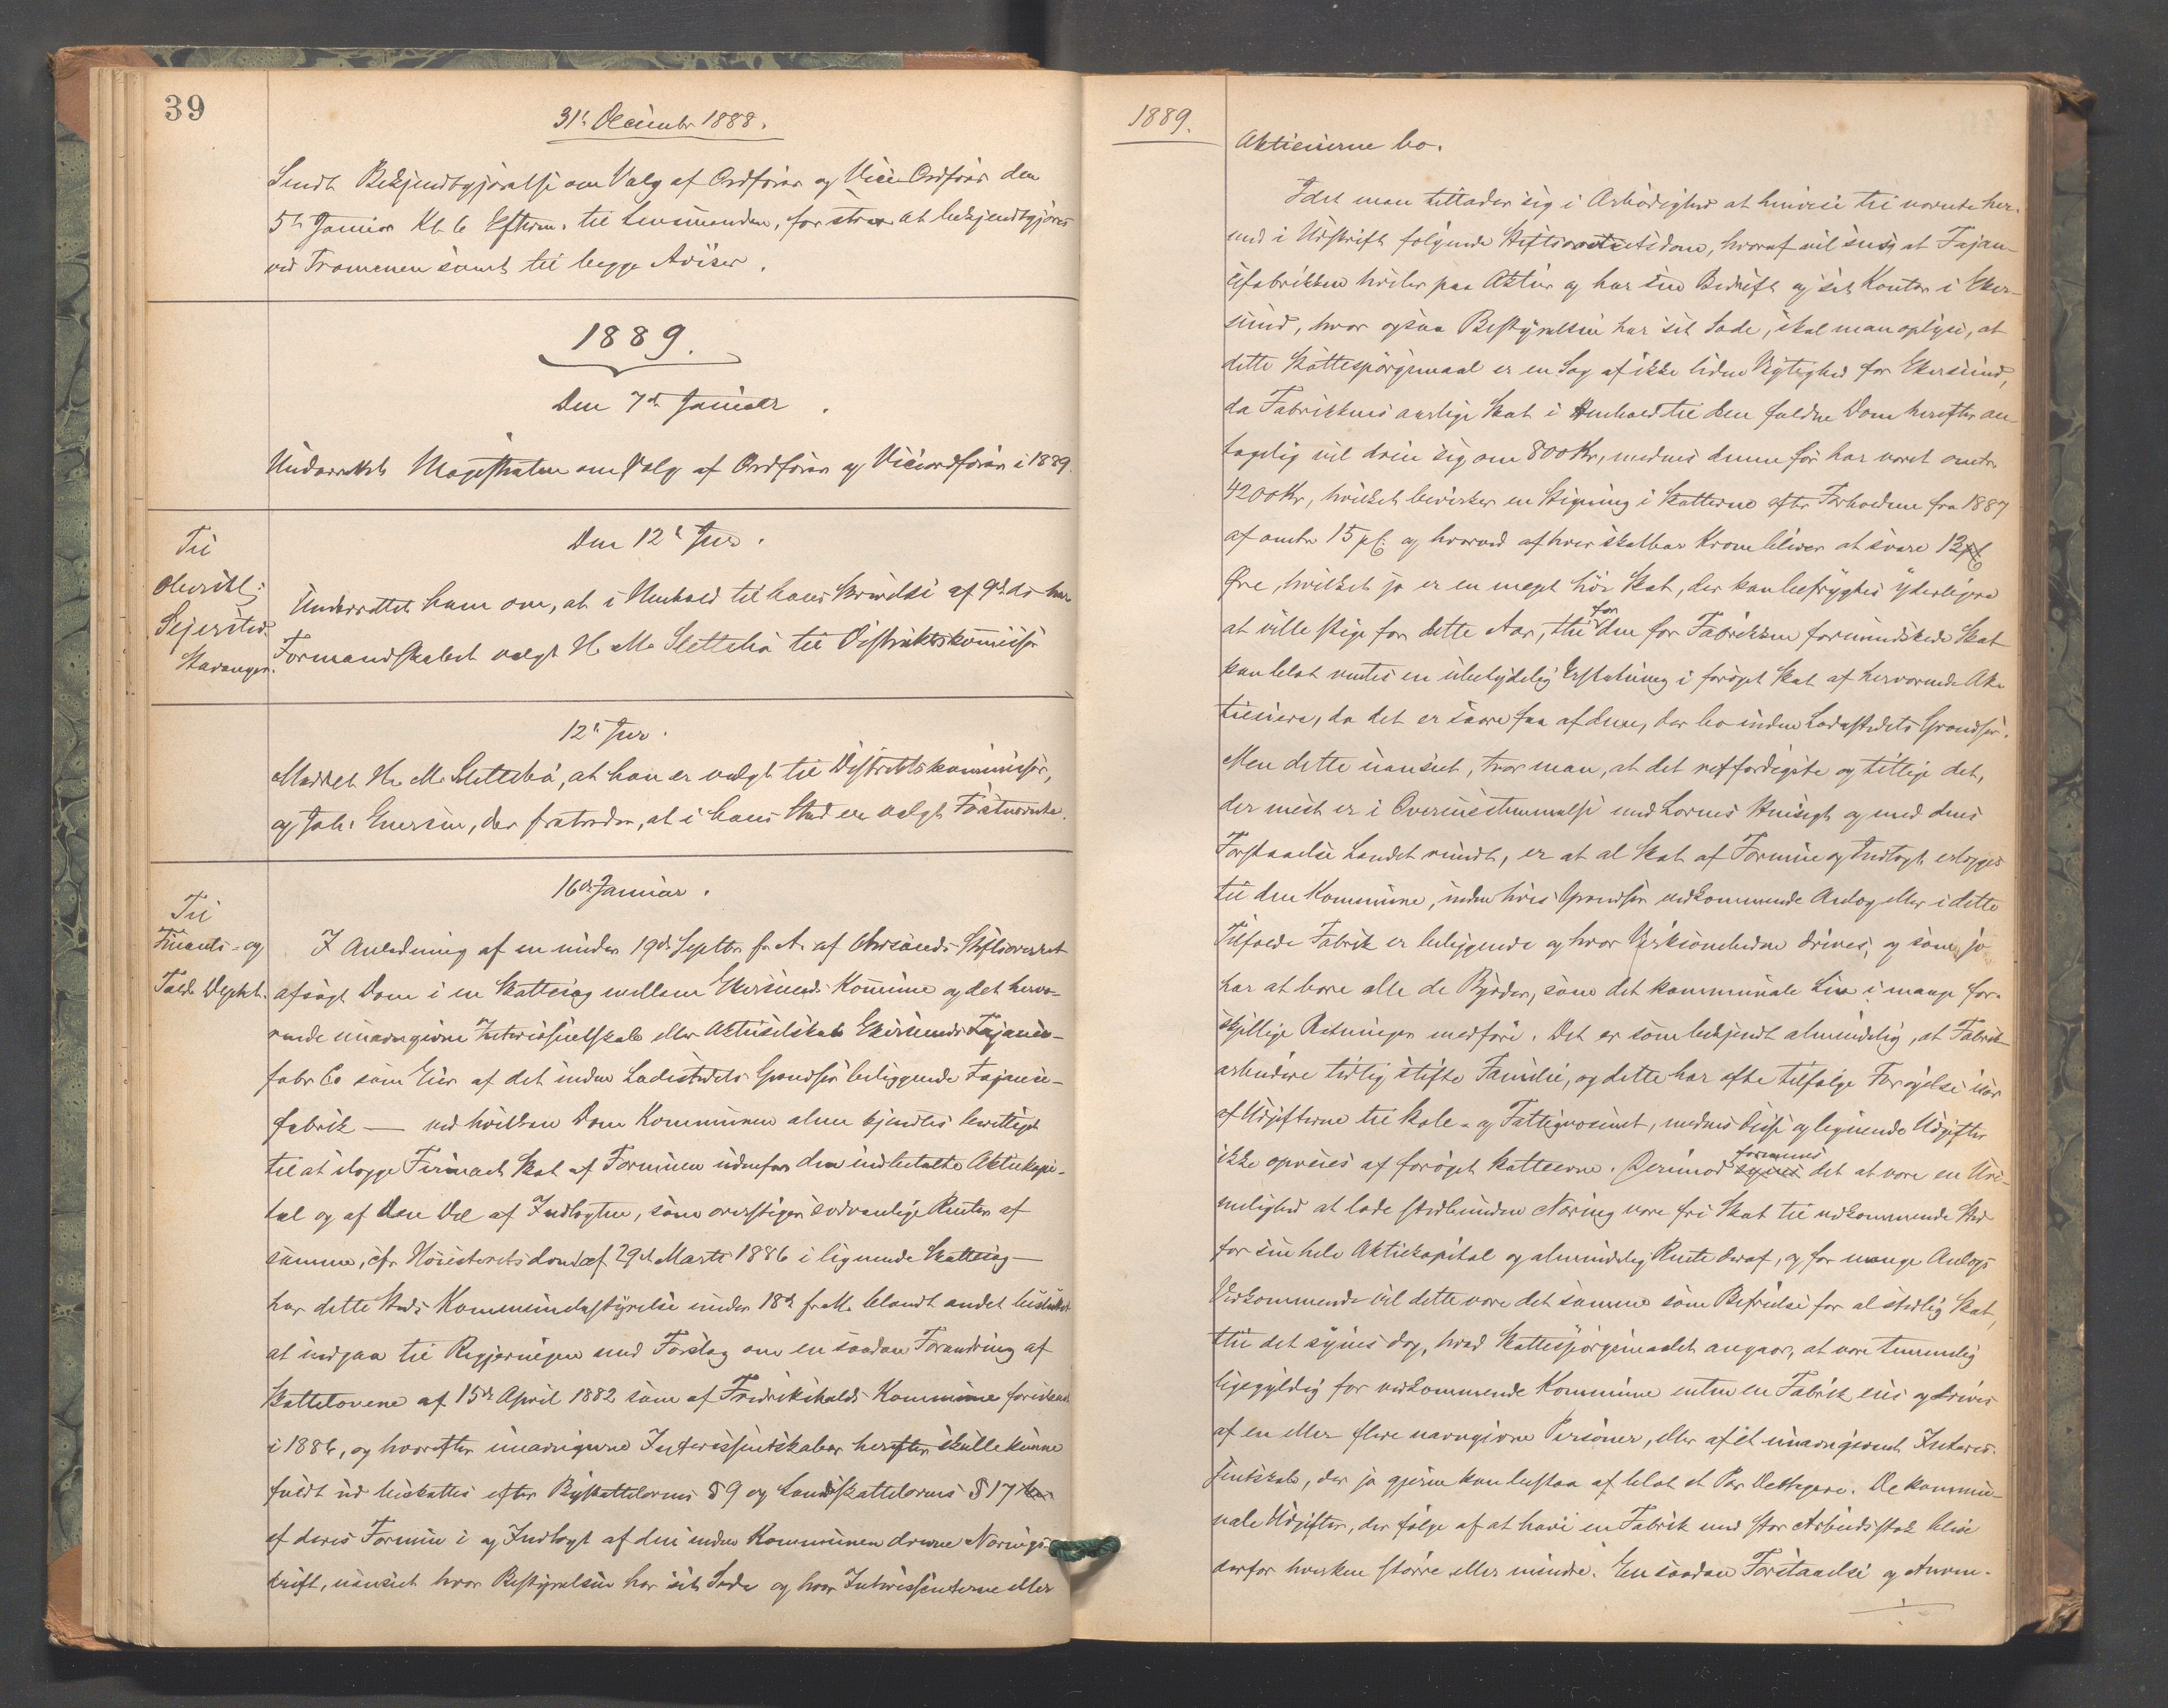 39
31te December 1888.
Sendt Bekjendtgjørelse om Valg af Ordfører og Vice Ordfører den
5te Januar Kl. 6 Efterm. til Lensmanden, for strax at bekjendtgjøres
ved Trommen samt til begge Aviser.
1889.
Den 7de Januar.
Underrettet Magistraten om Valg af Ordfører og Viceordfører i 1889.
Til
Oberstl:
Sejersted
Stavanger.
Den 12te Jan.
Underrettet ham om, at i Henhold til hans Skrivelse af 9de ds har
Formandskabet valgt H. M. Slettebø til Distriktskommissær
12te Jan.
Meddelt H. M. Slettebø, at han er valgt til Distriktskommissær,
og Joh: Enersen, der fratræder, at i hans Sted er valgt Førstnævnte.
Til
Finants- og
Told Depkt.
16de Januar.
I Anledning af en under 19de Septbr f. A. af Chrsands Stiftsoverret
afsagt Dom i en Skattesag mellem Ekersunds Kommune og det hervæ-
rende unavngivne Interessentskab eller Aktieselskab Ekersunds Fajance-
fabr Co som Eier af det inden Ladestedets Grændser beliggende Fajance-
fabrik — ved hvilken Dom Kommunen alene kjendtes berettiget
til at ilægge Firmaet Skat af Formuen udenfor den indbetalte Aktiekapi-
tal og af den Del af Indtægten, som overstiger sædvanlige Renter af
samme, cfr Høiesteretsdom af 29de Marts 1886 i lignende Skattesag —
har dette Steds Kommunebestyrelse under 18de f. M. blandt andet besluttet
at indgaa til Regjeringen med Forslag om en saadan Forandring af
Skattelovene af 15de April 1882 som af Fredrikshalds Kommune foreslaaet
i 1886, og hvorefter unavngivne Interessentskaber herefter skulle kunne
fuldt ud beskattes efter Byskattelovens § 9 og Landskattelovens § 17
af deres Formue i og Indtægt af den inden Kommunen drevne Nærings-
drift, uanseet hvor Bestyrelsen har sit Sæde og hvor Interessenterne eller
1889.
Aktieeierne bo.
Idet man tillader sig i Ærbødighed at henvise til nævnte her-
med i Udskrift følgende Stiftsoverretsdom, hvoraf vil sees, at Fajan-
cefabrikken hviler paa Aktier og har sin Bedrift og sit Kontor i Eker-
sund, hvor ogsaa Bestyrelsen har sit Sæde, skal man oplyse, at
dette Skattespørgsmaal er en Sag af ikke liden Vigtighed for Ekersund,
da Fabrikkens aarlige Skat i Henhold til den faldne Dom herefter an-
tagelig vil dreie sig om 800 Kr, medens denne før har været omtr.
4200 Kr, hvilket bevirker en Stigning i Skatterne efter Forholdene fra 1887
af omtr 15 pCt. og hvorved af hver skatbar Krone bliver at svare 12
Øre, hvilket jo er en meget høi Skat, der kan befrygtes yderligere
at ville stige for dette Aar, thi for den for Fabrikken formindskede Skat
kan blot ventes en ubetydelig Erstatning i forøget Skat af herværende Ak-
tieeiere, da det er saare faa af disse, der bo inden Ladestedets Grændser.
Men dette uanseet, tror man, at det retfærdigste og tillige det,
der mest er i Overensstemmelse med Lovens Hensigt og med dens
Forstaaelse Landet rundt, er at al Skat af Formue og Indtægt erlægges
til den Kommune, inden hvis Grændser vedkommende Anlæg eller i dette
Tilfælde Fabrik er beliggende og hvor Virksomheden drives, og som jo
har at bære alle de Byrder, som det kommunale Liv i mange for-
skjellige Retninger medføre. Det er som bekjendt almindelig, at Fabrik-
arbeidere tidlig stifte Familie, og dette har ofte tilfølge Forøgelse især
af Udgifterne til Skole- og Fattigvæsenet, medens disse og lignende Udgifter
ikke opveies af forøget Skatteevne. Derimod formenes det at være en Uri-
melighed at lade stedbunden Næring være fri Skat til vedkommende Sted
for sin hele Aktiekapital og almindelig Rente deraf, og for mange Anlægs
Vedkommende vil dette være det samme som Befrielse for al stedlig Skat,
thi det synes dog, hvad Skattespørgsmaalet angaar, at være temmelig
ligegyldig for vedkommende Kommune enten en Fabrik eies og drives
af en eller flere navngivne Personer, eller af et unavngivent Interes-
sentskab, der jo gjerne kan bestaa af blot et Par Deltagere. De kommu-
nale Udgifter, der følge af at have en Fabrik med stor Arbeidsstok blive
derfor hverken større eller mindre. En saadan Forstaaelse og Anven-